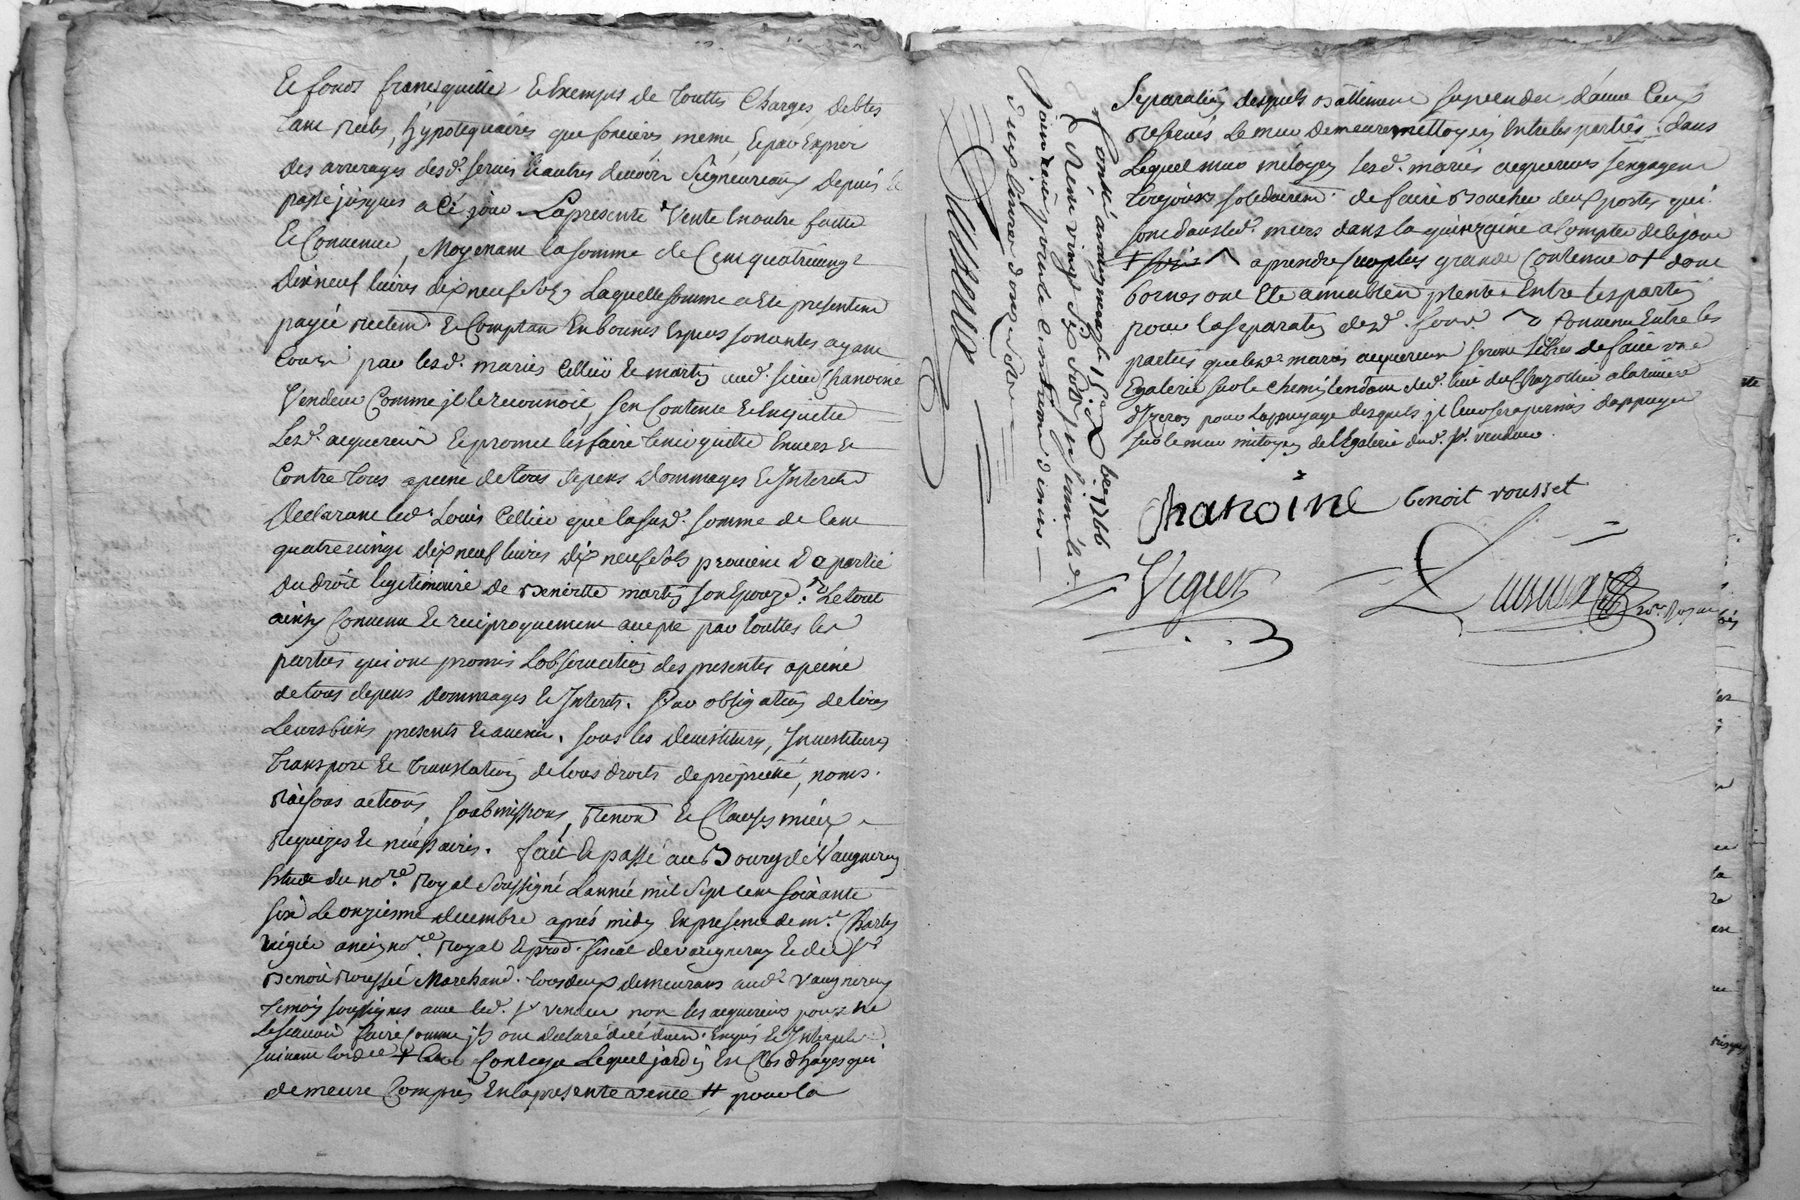 Et fonds franc quitte Et Exempts de touttes Charges, debtes
tant réels, hypotequaires que fonciers, meme, Et par Exprès
des arrerages desd. servis Et autres devoirs Seigneuriaux depuis le
passé jusques a Ce jour. La presente Vente En outre faitte
Et Convenue, Moyenant la somme de Cent quatrevingt
Dixneuf livres dix neuf sols Laquelle somme a Eté presentemt
payée réellemt. Et Comptant En bonnes Especes sonantes ayant
Cours par lesd. mariés Cellier Et martin aud. sieur Chanoine
Vendeur Comme jl le reconnoit, s'en Contente Et En quitte
Lesd. acquereurs Et promet les faire tenir quitte Envers Et
Contre tous a peine de tous depens Dommages Et Interets
Declarant led. Louis Cellier que la susd. somme de Cent
quatrevingt dix neuf livres dix neuf sols provient De partie
Du droit legitimaire de Benoitte martin son Epouze. Le tout
ainsy Convenu Et reciproquement accepté par touttes les
parties qui ont promis L'observation des presentes a peine
de tous depens dommages Et Interets. Par obligation de tous
Leurs biens presents Et avenir. sous les Devestitures, Investitures
transport Et translation de tous droits de proprieté, noms
Raisons actions, soubmissions, Renon. Et Clauses mieux
Requises Et nécessaires. fait Et passé au Bourg de Vaugneray
Etude du nore. Royal soussigné L'année mil sept cent soixante
six Le onzieme decembre après midy En presence de mr. Charles
Vigier ancien nore. Royal Et procr. fiscal de vaugneray Et de Sr
Benoit Rousset Marchand. tous deux demeurans aud. Vaugneray
temoins soussignés avec led. Sr vendeur non les acquereurs pour ne
Le scavoir faire Comme jls ont declaré de ce duemt. Enquis Et Interpelés
suivant l'ordce + Contigu Lequel jardin En Clos d'hayes qui
demeure Compris En la presente vente # pour la
Separation desquels Battiment suivendu d'avec Ceux
Reservés Le mur demeure mettoyen Entre les parties. dans
Lequel mur mitoyen lesd. mariés acquereurs s'engagent
toujours solidairemt. de faire Boucher deux portes qui
sont dans led. murs dans la quinzaine a Compter de Ce jour
a prendre sur plus grande Contenue ot dont
bornes ont Eté amiablemt plantés Entre les parties
pour la separation desd. fonds. Convenu Entre les
parties que lesd. mariés acquereurs seront libres de faire une
Egalerie sur le Chemin tendant dud. lieu du Chazottier a la riviere
d'Yzeron pour L'appuyage desquels jl leur sera permis d'appuyer
sur le mur mitoyen de l'Egalerie dud. Sr. vendeur.
Chanoine benoit rousset
Vigier
Controllé a vaugneray le 15e. Xbre 1766
Reçu vingt six sols